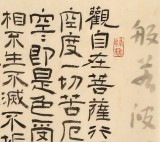 般若波
觀自在菩薩行
空度一切苦厄
空〻即是色受
相不生不滅不垢